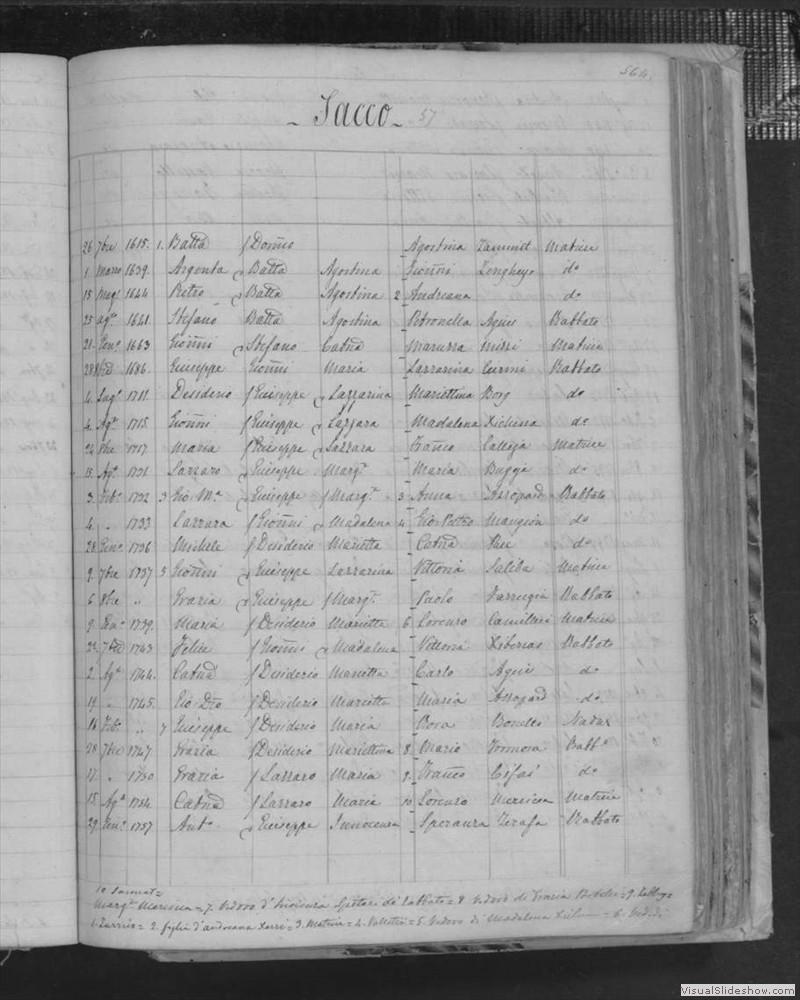 564.
- Sacco - 57
26 7bre 1615. 1. Batta f Dom̃co Agostina Zammit Matrice
1 Marzo 1639. Argenta Batta Agostina Gioñni Zengheyo do
15 Mago 1644 Pietro Batta Agostina 2 Andreana do
25 ago 1641. Stefano Batta Agostina Petronella Agius Rabbato
21 Geno 1663 Gioñni Stefano Catña Maruzza Mizzi Matrice
28 1686. Giuseppe Gioñni Maria Lazzarina Curmi Rabbato
4 Lugo 1711. Desiderio f Giuseppe Lazzarina Mariettina Borg do
4 Ago 1715. Gioñni f Giuseppe Lazzara Madalena Xicluna do
24 8bre 1717 Maria f Giuseppe Lazzara Franco Calleja Matrice
15 Ago 1731 Lazzaro Giuseppe Margta Maria Bugeja do
3 Febo 1732 3 Gio Ma Giuseppe f Margta 3 Anna Azzopard Rabbato
4 " 1733 Lazzara f Gioñni Madalena 4 Gio Pietro Mangion do
28 Geno 1736 Michele f Desiderio Marietta Catña do
9 7bre 1737 5 Gioñni Giuseppe Lazzarina Vittoria Saliba Matrice
6 8bre " Grazia Giuseppe f Margta Paolo Farrugia Rabbato
9 Geno 1739. Maria f Desiderio Marietta 6 Lorenzo Camilleri Matrice
22 7bre 1743 Felice f Gioñni Madalena Vittoria Xiberras Rabbato
2 Ago 1744. Catña f Desiderio Marietta Carlo Agius do
14 " 1745. Gio Dto f Desiderio Marietta Maria Azzopard do
14 Febo " 7 Giuseppe f Desiderio Maria Rosa Bonello Nadur
28 7bre 1747 Grazia f Desiderio Mariettina 8. Mario Formosa Rabbo
17 " 1750 Grazia f Lazzaro Maria 9. Franco Cefai do
15 Ago 1754. Catña f Lazzaro Maria 10 Lorenzo Mercieca Matrice
29 Geno 1757 Anto Giuseppe Innocenza Speranza Zerafa Rabbato
10 Sannat =
Margta = 7. Vedovo d' di Rabbato = 8 Vedovo di Grazia = 9.
1. Zurrico = 2. figlia d'andreana Xerri = 3. Matrice = 4. Valletta = 5. Vedovo di Madalena = 6. Ved. di
VisualSlideshow.com